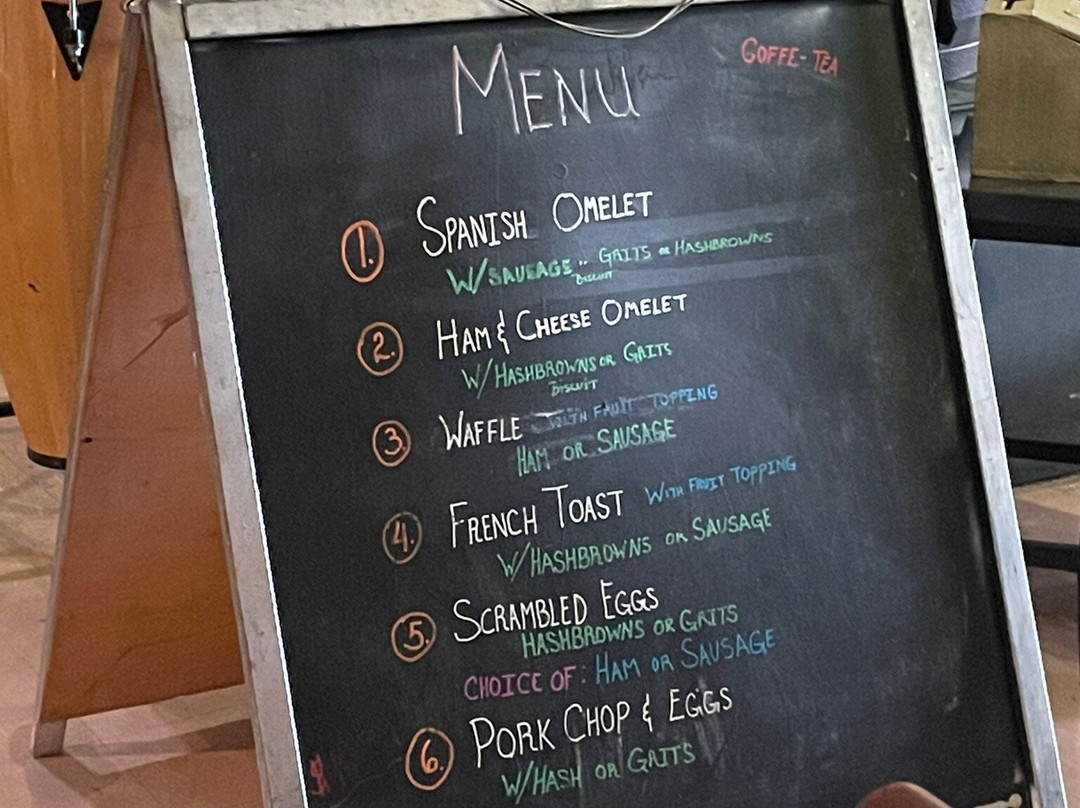 MENU
COFFE- TEA
1. SPANISH OMELET
W/SAUSAGE .. GRITS OR HASHBROWNS
BISCUIT
2. HAM & CHEESE OMELET
W/HASHBROWNS OR GRITS
BISCUIT
3. WAFFLE WITH FRUIT TOPPING
HAM OR SAUSAGE
4. FRENCH TOAST WITH FRUIT TOPPING
W/HASHBROWNS OR SAUSAGE
5. SCRAMBLED EGGS
HASHBROWNS OR GRITS
CHOICE OF: HAM OR SAUSAGE
6. PORK CHOP & EGGS
W/HASH OR GRITS